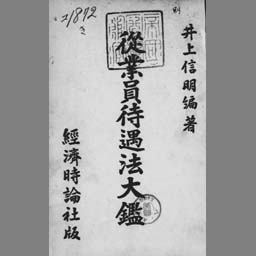 別
井上信明編著
從業員待遇法大鑑
經濟時論社版